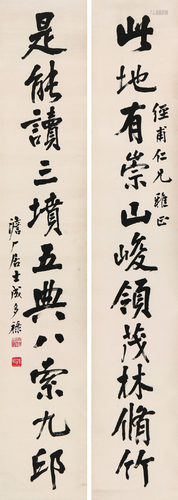 此地有崇山峻領茂林脩竹
經甫仁兄雅正
是能讀三墳五典八索九邱
澹廠居士成多祿